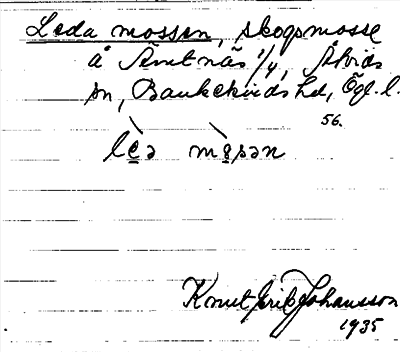 Leda mossen, skogsmosse
å Åmtnäs 1/4, Åtvids
sn, Bankekinds hd, Ögl. l.
56.
lèə mòsən
Knut Erik Johansson
1935